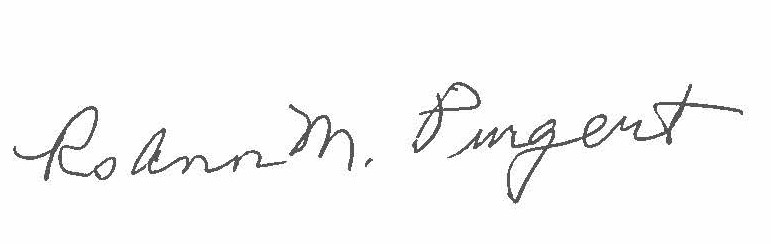 RoAnn M. Pungert